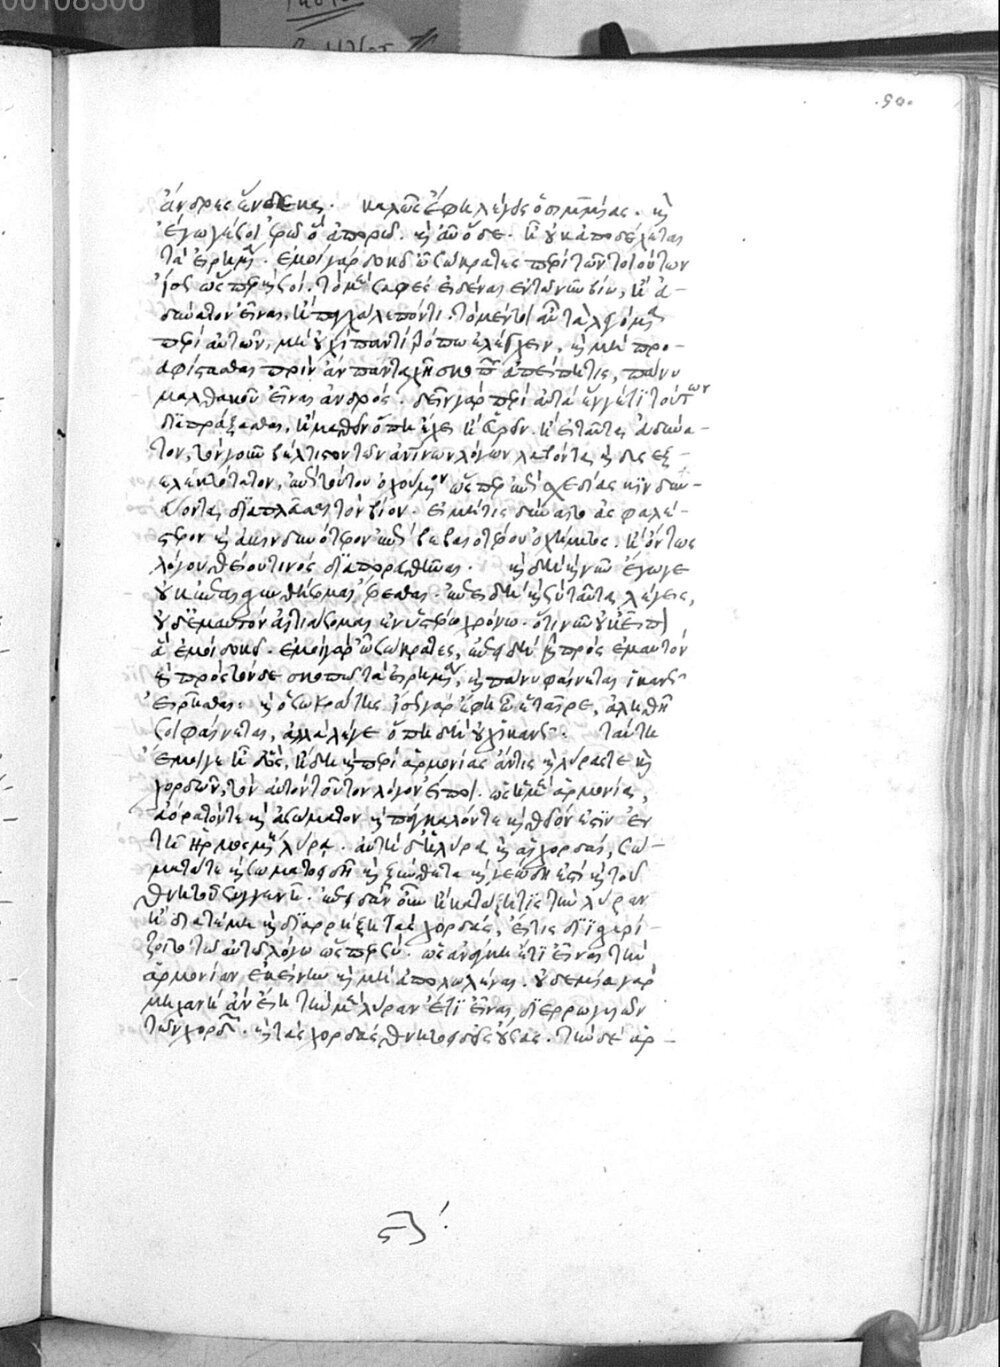 ἄνδρες ἕνδεκα. καλῶς ἔφη λέγεις ὁ σιμμίας. καὶ
ἔγωγέ σοι ἐρῶ ὃ ἀπορῶ. καὶ αὖ ὅδε. ᾗ οὐκ ἀποδέχεται
τὰ εἰρημένα. ἐμοὶ γὰρ δοκεῖ ὦ σώκρατες περὶ τῶν τοιούτων
ἴσως ὥσπερ καὶ σοί. τὸ μὲν σαφὲς εἰδέναι ἐν τῷ νῦν βίῳ, ἢ ἀ-
δύνατον εἶναι, ἢ παγχάλεπόν τι. τὸ μέντοι αὖ τὰ λεγόμενα
περὶ αὐτῶν, μὴ οὐχὶ παντὶ τρόπῳ ἐλέγχειν, καὶ μὴ προ-
αφίστασθαι πρὶν ἂν πανταχῆ σκοπῶν ἀπείπῃ τις, πάνυ
μαλθακοῦ εἶναι ἀνδρός. δεῖν γὰρ περὶ αὐτὰ ἕν γέ τι τούτων
διαπράξασθαι, ἢ μαθεῖν ὅπῃ ἔχει ἢ εὑρεῖν. ἢ εἰ ταῦτα ἀδύνα-
τον, τὸν γοῦν βέλτιστον τῶν ἀνθρωπίνων λόγων λαβόντα καὶ δυσεξ-
ελεγκτότατον, ἐπὶ τούτου ὀχούμενον ὥσπερ ἐπὶ σχεδίας κινδυν-
εύοντα διαπλεῦσαι τὸν βίον. εἰ μή τις δύναιτο ἀσφαλέ-
στερον καὶ ἀκινδυνότερον ἐπὶ βεβαιοτέρου ὀχήματος. ἢ
λόγου θείου τινὸς διαπορευθῆναι. καὶ δὴ καὶ νῦν ἔγωγε
οὐκ ἐπαισχυνθήσομαι ἐρέσθαι. ἐπειδὴ καὶ σὺ ταῦτα λέγεις,
οὐδ' ἐμαυτὸν αἰτιάσομαι ἐν ὑστέρῳ χρόνῳ. ὅτι νῦν οὐκ εἶπον
ἃ ἐμοὶ δοκεῖ. ἐμοὶ γὰρ ὦ σώκρατες, ἐπειδὴ καὶ πρὸς ἐμαυτὸν
καὶ πρὸς τόνδε σκοπῶ τὰ εἰρημένα, οὐ πάνυ φαίνεται ἱκανῶς
εἰρῆσθαι. καὶ ὁ σωκράτης ἴσως γὰρ ἔφη ὦ ἑταῖρε, ἀληθῆ
σοι φαίνεται, ἀλλὰ λέγε ὅπῃ δὴ οὐχ ἱκανῶς. ταύτῃ
ἔμοιγε ἦ δ' ὅς, ᾗ δὴ καὶ περὶ ἁρμονίας ἄν τις καὶ λύρας τε καὶ
χορδῶν, τὸν αὐτὸν τοῦτον λόγον εἴποι. ὡς ἡ μὲν ἁρμονία,
ἀόρατόν τι καὶ ἀσώματον καὶ πάγκαλόν τι καὶ θεῖόν ἐστιν ἐν
τῇ ἡρμοσμένῃ λύρᾳ. αὐτὴ δ' ἡ λύρα καὶ αἱ χορδαί, σώ-
ματά τε καὶ σωματοειδῆ καὶ ξύνθετα καὶ γεώδη ἐστὶ καὶ τοῦ
θνητοῦ ξυγγενῆ. ἐπειδὰν οὖν ἢ κατάξῃ τις τὴν λύραν
ἢ διατέμῃ καὶ διαρρήξῃ τὰς χορδάς, εἴ τις διϊσχυρί-
ζοιτο τῷ αὐτῷ λόγῳ ὥσπερ σύ. ὡς ἀνάγκη ἔτι εἶναι τὴν
ἁρμονίαν ἐκείνην καὶ μὴ ἀπολωλέναι. οὐδεμία γὰρ
μηχανὴ ἂν εἴη τὴν μὲν λύραν ἔτι εἶναι, διερρωγυιῶν
τῶν χορδῶν. καὶ τὰς χορδὰς θνητοειδεῖς οὔσας. τὴν δὲ ἁρ-